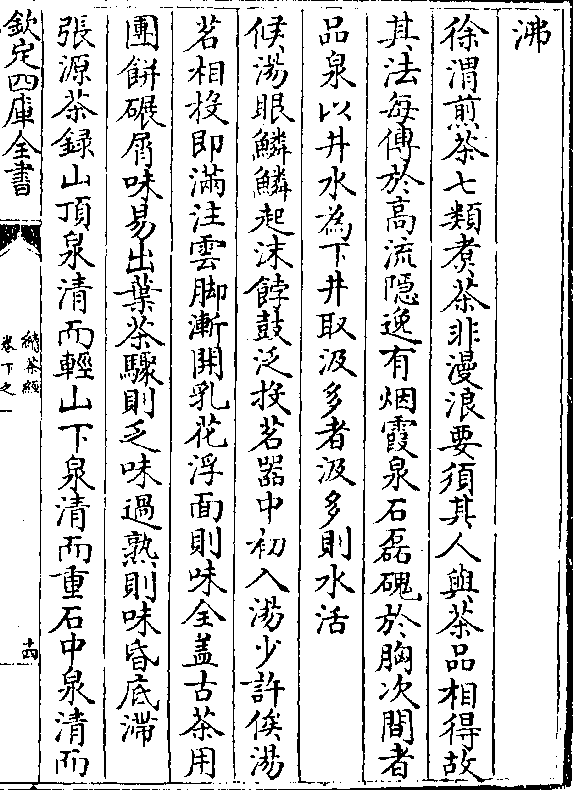 沸
徐渭煎茶七類煑茶非漫浪要須其人與茶品相得故
其法每傳於高流隠逸有烟霞泉石磊磈於胸次間者
品泉以井水為下井取汲多者汲多則水活
候湯眼鱗鱗起沫餑鼓泛投茗器中初入湯少許俟湯
茗相投即滿注雲脚漸開乳花浮面則味全蓋古茶用
團餅碾屑味易出葉茶驟則乏味過熟則味昏底滯
張源茶録山頂泉清而輕山下泉清而重石中泉清而
欽定四庫全書
續茶經
卷下之一
十四